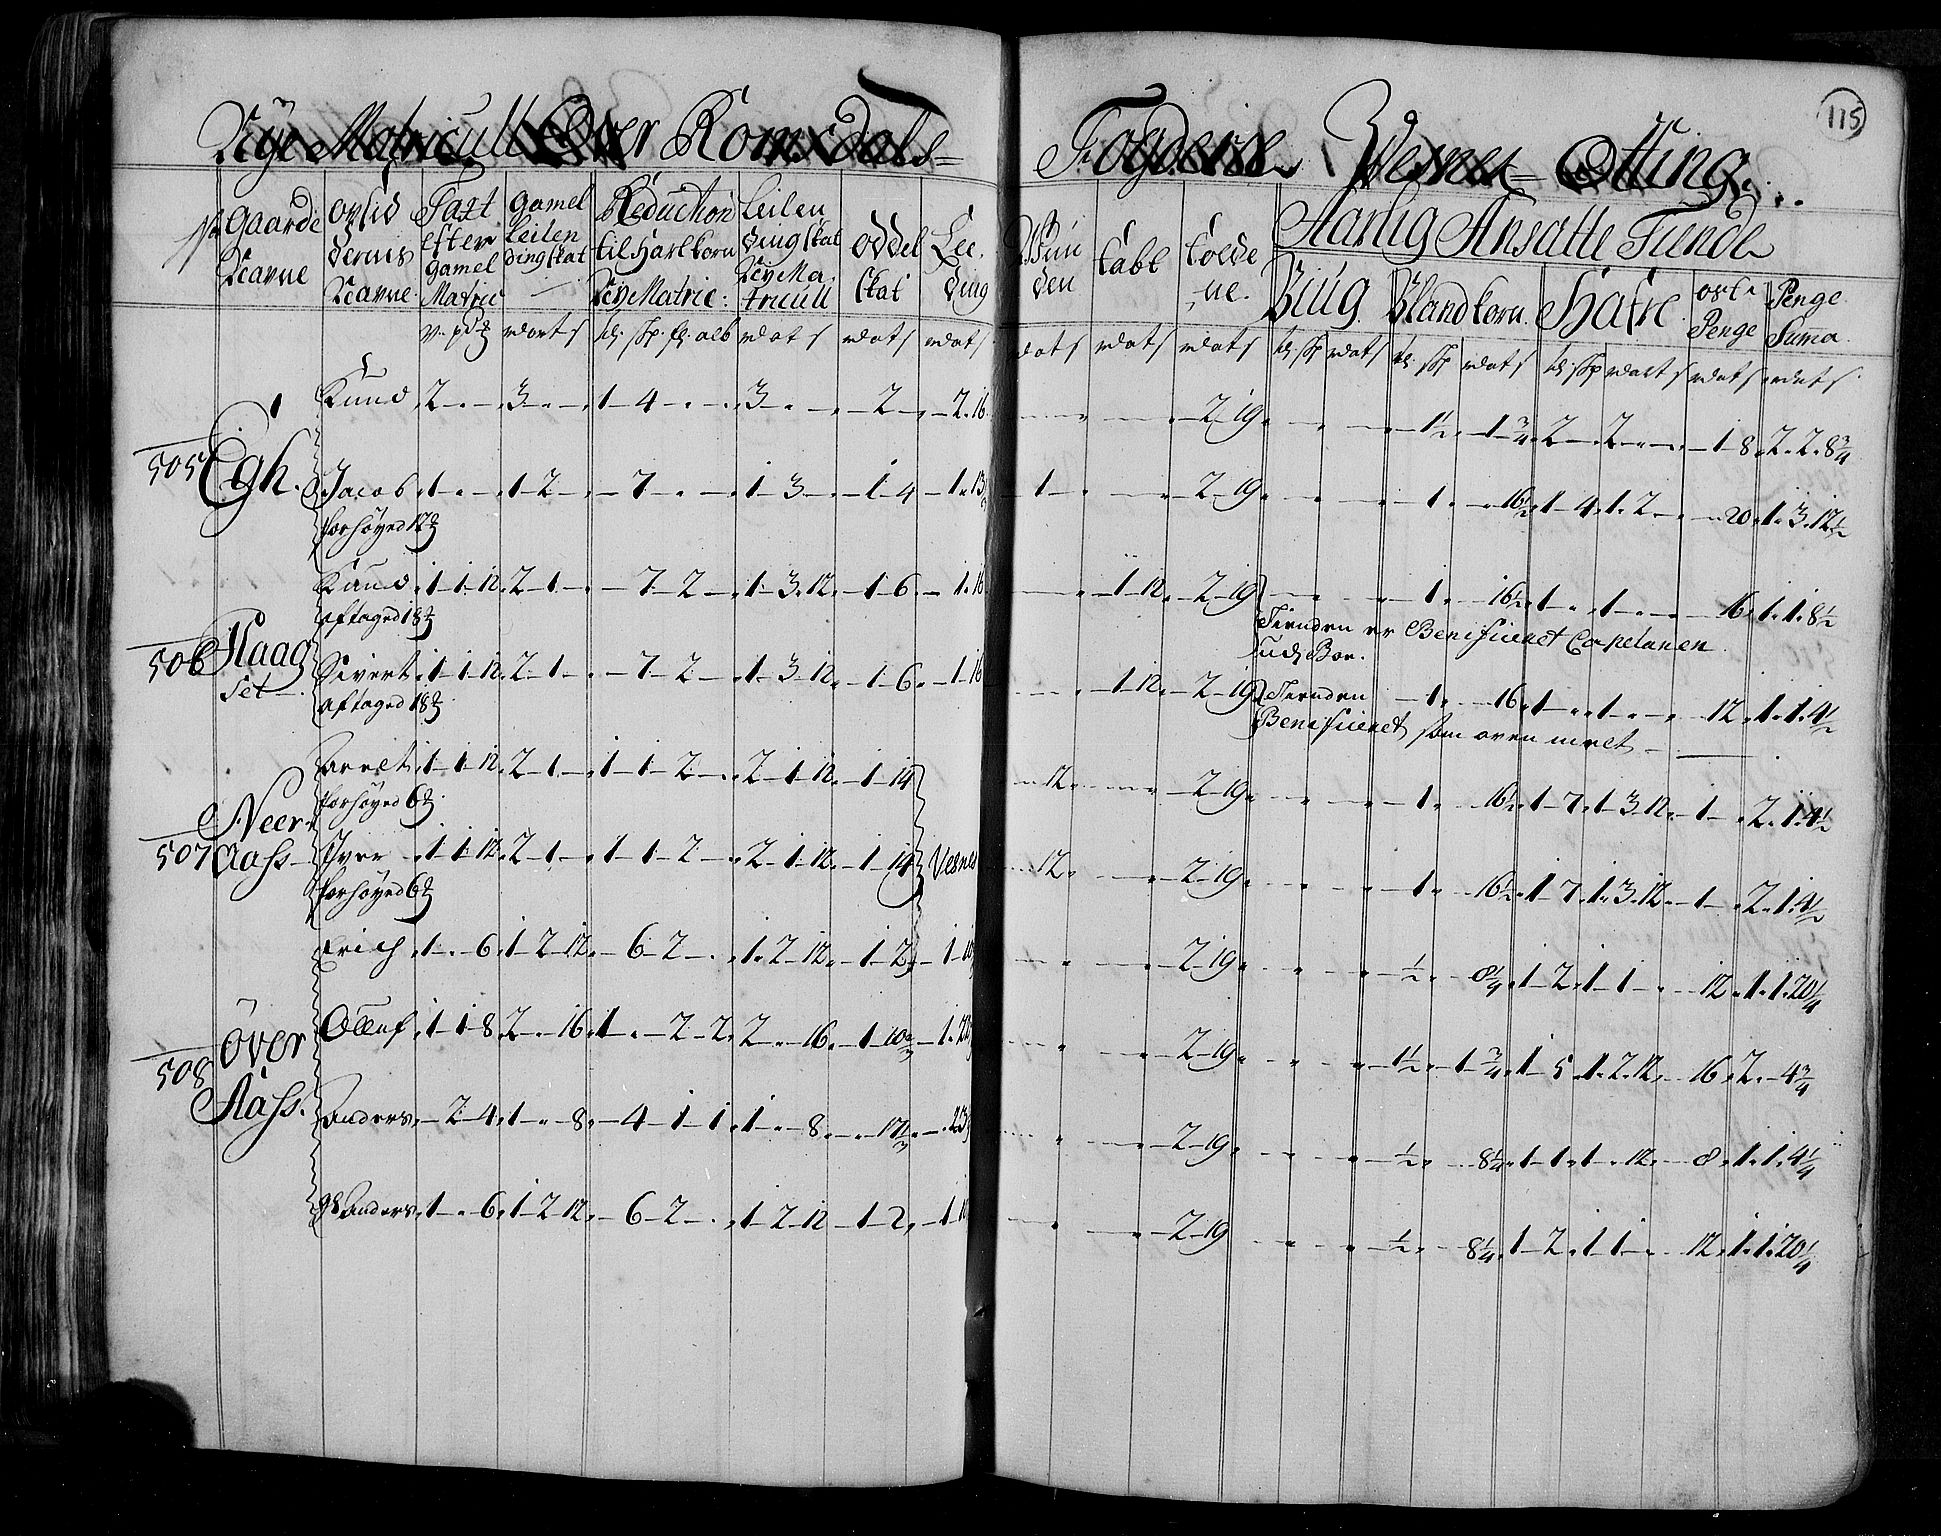 115
Nÿe Matricull Over Romsdals= Fogderie Vesnes= Otting
No Gaarde Navne
Opsid dernis Navne
Taxt efter gamel Matric
gamel Leilen dingskat
Reduction til Hartkorn Nÿe Matric:
Leilen dingskat Nÿe Ma tricull
oddel skat
Lee. ding
tabe
tolde ne.
Aarlig Ansatte Tiende
Biug
Blandkorn.
Hafre
ost Penge
Penge Suma
Knud 2 - - 3 - - 1 - 4 - - 3 - - - 2 - - 2 - 16 - 2 - 19 - 1½ - 1¾ 2 - 2 - - 1 - 8 2 - 2 - 8¾
505 Egh.
Jacob 1 - - 1 - 2 - - 7 - - 1 - 3 - - 1 - 4 - 1 - 13 1 - - 2 - 19 - 1 - 16½ 1 - 4 1 - 2 - - 20 1 - 3 - 12½
forhøÿed 12
Knud 1 - 1 - 12 2 - 1 - - 7 - 2 - 1 - 3 - 12 - 1 - 6 - 1 - 16 - 1 - 12 - 2 - 19 - 1 - 16½ 1 - - 1 - - - 16 1 - 1 - 8½
aftaged 18
Tienden er Benificeret Capelanen
506 Haag set
Sivert 1 - 1 - 12 2 - 1 - - 7 - 2 - 1 - 3 - 12 - 1 - 6 - 1 - 16 - 1 - 12 - 2 - 19 Tienden - 1 - 16 1 - - 1 - - - 12 1 - 1 - 4½
aftaged 18
Benificeret som oven melt
1 - 1 - 12 2 - 1 - 1 - 1 - 2 - 2 - 1 - 12 - 1 - 14 - 12 - 2 - 19 - 1 - 16½ 1 - 7 1 - 3 - 12 - 1 - 2 - 1 - 4½
forhøÿed 6
507 Neer Aass
Iver 1 - 1 - 12 2 - 1 - 1 - 1 - 2 - 2 - 1 - 12 - 1 - 14 Vesnes 12 - 2 - 19 - 1 - 16½ 1 - 7 1 - 3 - 12 - 1 - 2 - 1 - 4½
forhøÿed 6
Erich 1 - - 6 1 - 2 - 12 - 6 - 2 - 1 - 2 - 12 - 1 - 2 - 1 - - 2 - 19 - ½ - 8¼ 1 - 2 1 - 1 - - 12 1 - 1 - 20¼
508 över Aass.
Olluf 1 - 1 - 8 2 - - 16 1 - - 2 - 2 2 - - 16 - 1 - 10⅔ - 1 - - 2 - 19 - 1½ - 1¾ 1 - 5 1 - 2 - 12 - 16 2 - - 4¾
Anders - 2 - 4 1 - - 8 - 4 - 1 - 1 1 - - 8 - - 17⅓ - - 2 - 19 - ½ - 8¼ 1 - 1 1 - - 12 - 8 1 - 1 - 4¼
Anders 1 - - 6 1 - 2 - 12 - 6 - 2 - 1 - 2 - 12 - 1 - 2 - 1 - - 2 - 19 - ½ - 8¼ 1 - 2 1 - 1 - - 12 1 - 1 - 20¼